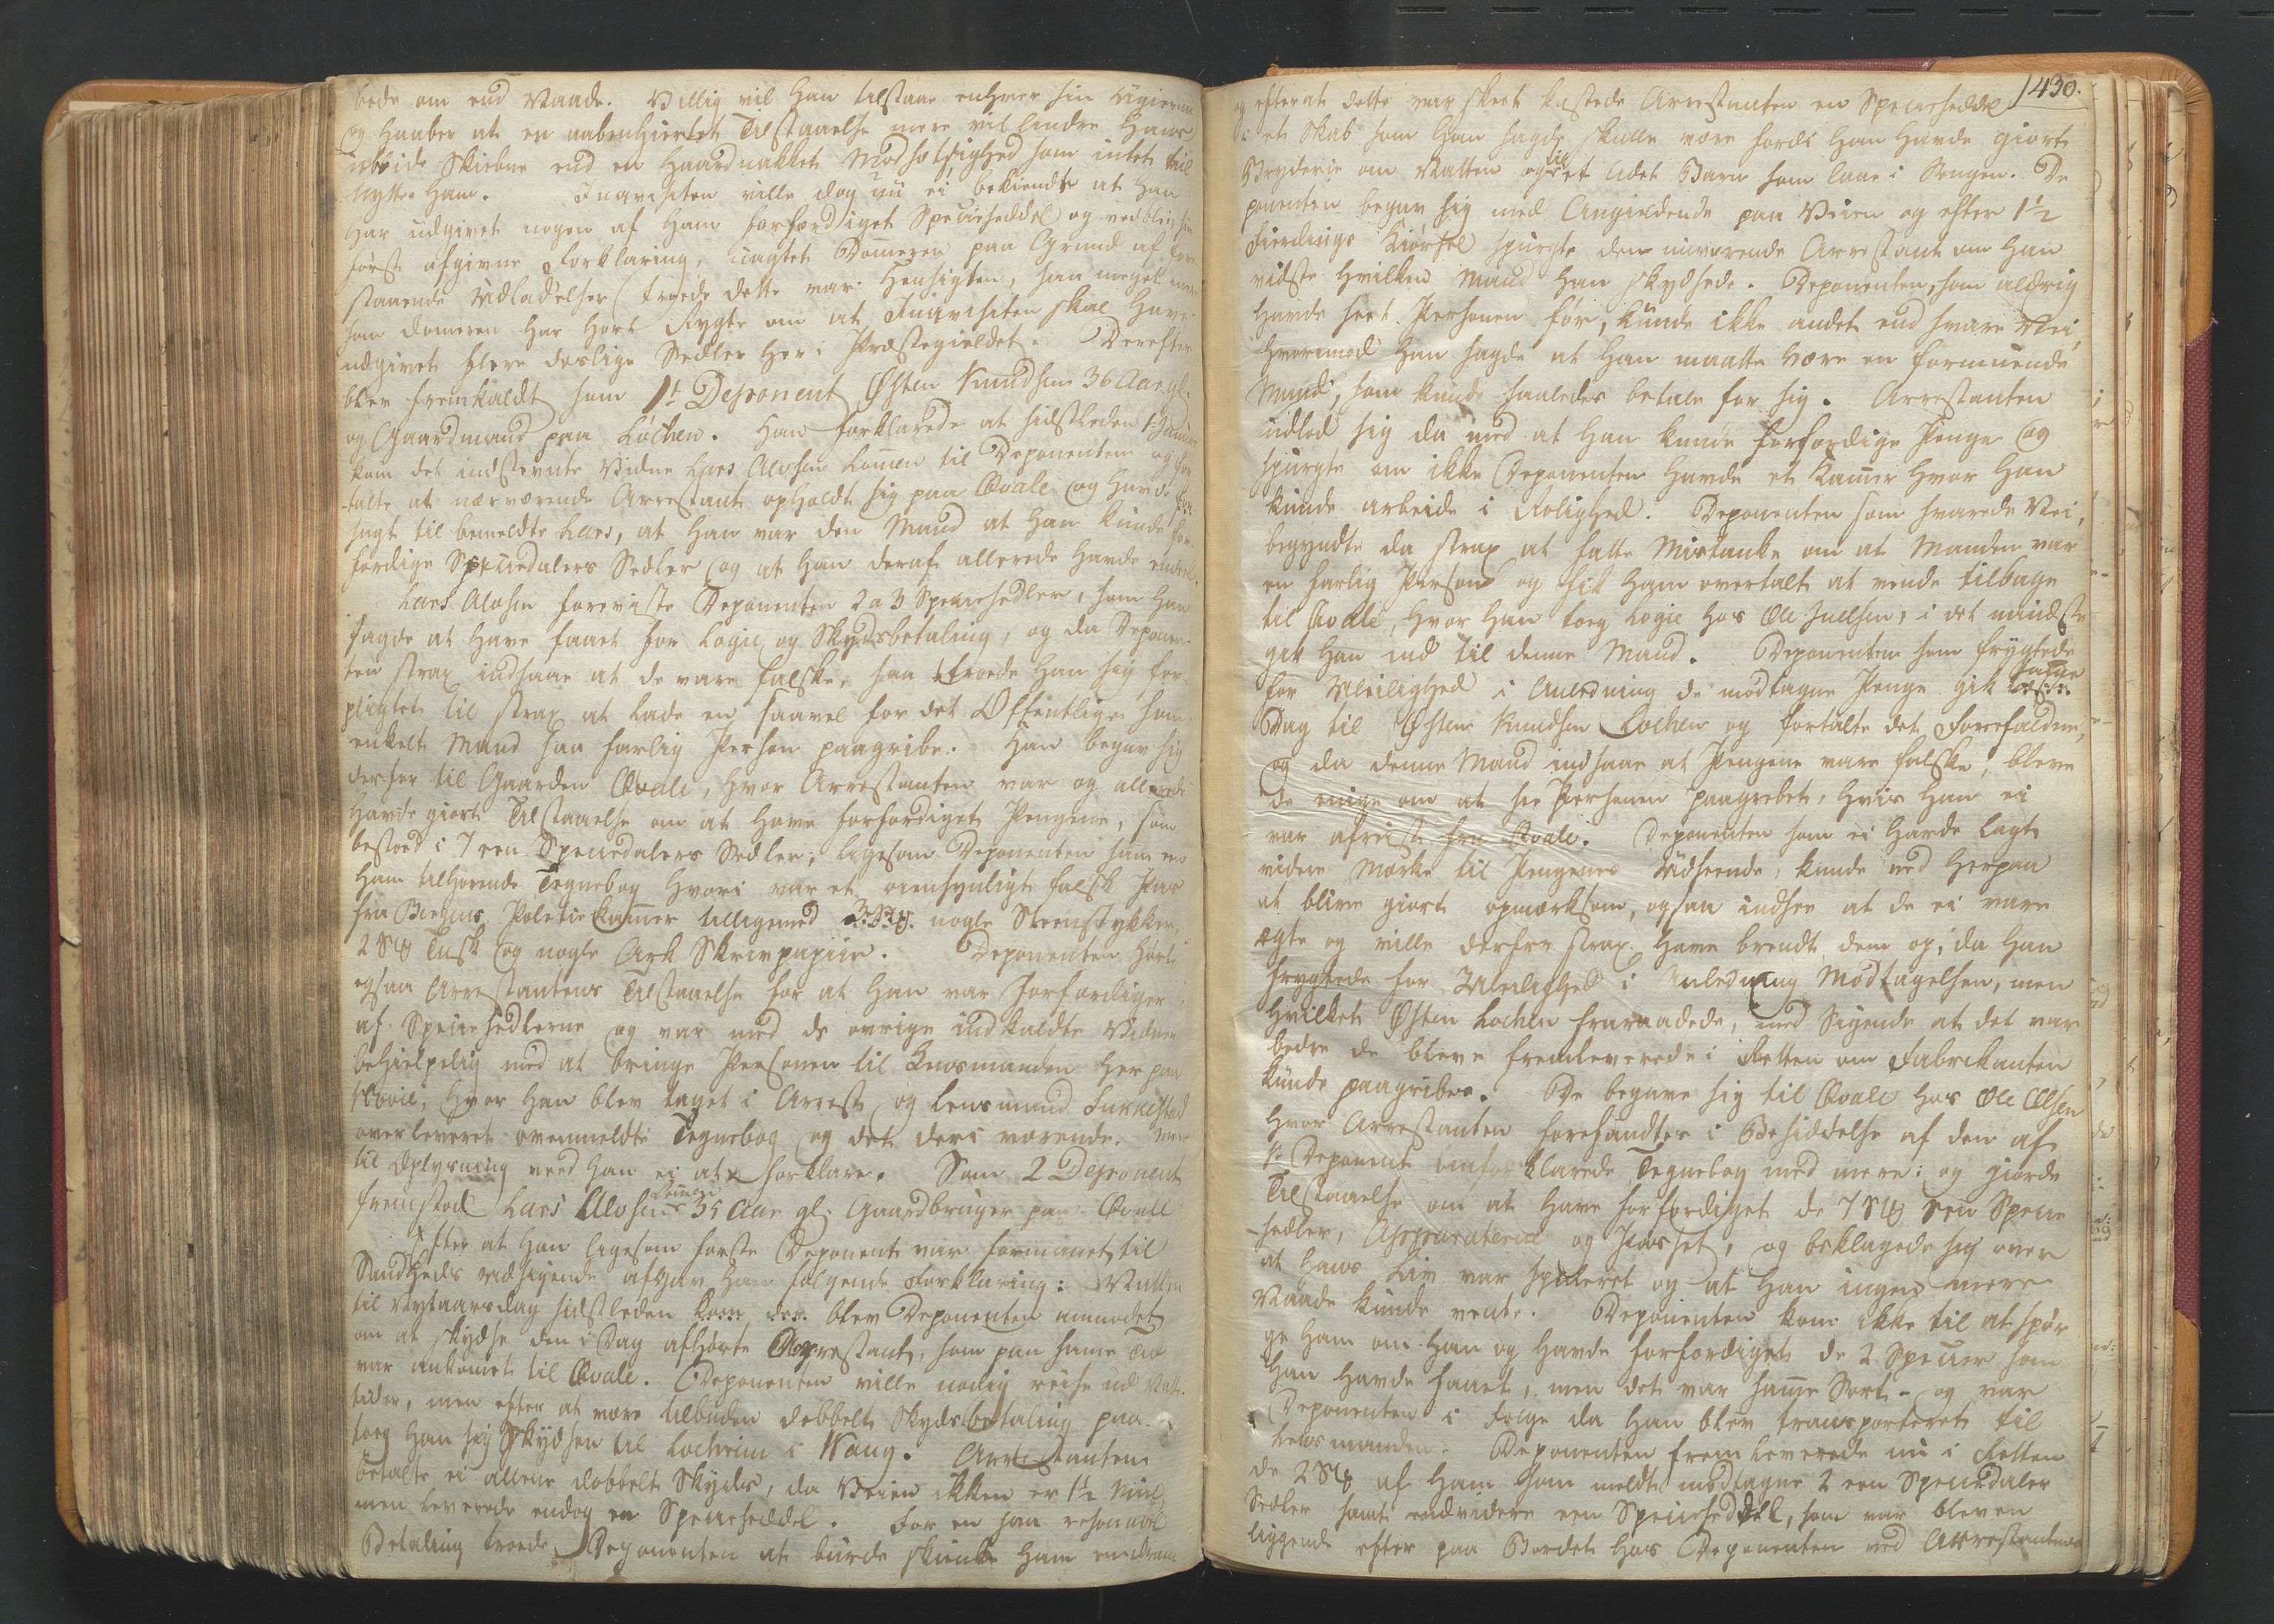 bede om end Naade. Villig vil han tilstaae enhver sin Gierning
og haaber at en aabenhiertet Tilstaaelse mere vil lindre hans
ublide Skiebne end en haardnakket Modsætlighed som intet vil
nytte ham. Inqvisiten ville dog nu ei bekiende at han
har udgivet nogen af ham forfærdiget Specieseddel og vedblev sin
først afgivne Forklaring, uagtet Dommeren paa Grund af fore-
staaende Udladelser troede dette var Hensigten, saa meget mere
som Dommeren har hørt Rygte om at Inqvisiten skal have
udgivet flere deslige Sedler her i Præstegieldet. Derefter
blev fremkaldt som 1te Deponent Østen Knudsen 36 Aar gl.
og Gaardmand paa Lochen. Han forklarede at sidstleden 1 Januar
kom det indstevnte Vidne Lars Alvsen Lomen til Deponenten og for-
talte at nærværende Arrestant opholdt sig paa Qvale og havde
sagt til bemeldte Lars, at han var den Mand at han kunde for-
færdige Speciedalers Sedler og at han deraf allerede havde
Lars Alvsen foreviste Deponenten 2 a 3 Speciesedler, som han
sagde at have faaet for Logie og Skydsbetaling, og da Deponen-
ten strax indsaae at de vare falske, saa troede han sig for-
pligtet til strax at lade en saavel for det Offentlige som
enkelt Mand saa farlig Person paagribe. Han begav sig
derfor til Gaarden Qvale, hvor Arrestanten var og allerede
havde giort Tilstaaelse om at have forfærdiget Pengene, som
bestoed i 7 een Speciedalers Sedler, ligesom Deponenten saae en
ham tilhørende Tegnebog hvori var et øiensynligt falsk Pas
fra Bergens Politiekammer tilligemed nogle Steenstykker,
2 Tusk og nogle Ark Skrivpapiir. Deponenten hørte
ogsaa Arrestantens Tilstaaelse for at han var Forfærdiger
af Speciesedlerne og var med de øvrige indkaldte Vidner
behielpelig med at bringe Personen til Lensmanden her paa
hvor han blev taget i Arrest og Lensmand
overleveret ovenmeldte Tegnebog og det deri værende. Mere
til Oplysning veed han ei at forklare. Som 2 Deponent
fremstod Lars Alvsen Lomen 35 Aar gl. Gaardbruger paa Qvale
Efter at han ligesom første Deponent var formanet til
Sandheds Udsigende afgav han følgende Forklaring: Natten
til Nytaarsdag sidstleden blev Deponenten anmodet
om at skydse den i Dag afhørte Arrestant, som paa samme Tid
var ankommet til Qvale. Deponenten ville nødig reise ud Natte-
tider, men efter at være tilbuden dobbelt Skydsbetaling paa-
tog han sig Skydsen til Lochren i Wang. Arrestanten
betalte ei allene dobbelt Skyds, da Veien ikkun er 1½ Miil,
men leverede endog en Specieseddel. For en saa
Betaling troede Deponenten at burde skienke ham en Dram
1430.
og efterat dette var skeet kastede Arrestanten en Specieseddel
i et Skab som han sagde skulle være fordi han havde giort
Bryderie om Natten og til et lidet Barn som laae i Sengen. De-
ponenten begav sig med Angieldende paa Veien og efter 1½
Fierdings Kiørsel spurgte den nuværende Arrestant om han
vidste hvilken Mand han skydsede. Deponenten, som aldrig
havde seet Personen før, kunde ikke andet end svare Nei,
hvorimod han sagde at han maatte være en formuende
Mand, som kunde saaledes betale for sig. Arrestanten
udlod sig da med at han kunde forfærdige Penge og
spurgte om ikke Deponenten havde et Kammer hvor han
kunde arbeide i Rolighed. Deponenten som svarede Nei,
begyndte da strax at fatte Mistanke om at Manden var
en farlig Person og fik ham overtalt at vende tilbage
til Qvale, hvor han tog Logie hos Ole Juelsen, i det mindste
gik han ind til denne Mand. Deponenten som frygtede
for Uleilighed i Anledning de modtagne Penge gik
Dag til Østen Knudsen Lochen og fortalte det Forefaldne,
og da denne Mand indsaae at Pengene vare falske, bleve
de enige om at see Personen paagrebet, hvis han ei
var afreist fra Qvale. Deponenten som ei havde lagt
videre Mærke til Pengenes Udseende, kunde ved herpaa
at blive giort opmærksom, ogsaa indsee at de ei vare
ægte og ville derfor strax have brendt dem op, da han
frygtede for Uleilighed i Anledning Modtagelsen, men
hvilket Østen Lochen fraraadede, med Sigende at det var
bedre de bleve fremleverede i Retten om Fabrikanten
kunde paagribes. De begave sig til Qvale hos Ole Olsen
hvor Arrestanten forefandtes i Besiddelse af den af
1te Deponent omforklarede Tegnebog med mere: og giorde
Tilstaaelse om at have forfærdiget de 7 een Specie
sedler, Apparaterne og Passet, og beklagede sig over
at hans Liv var spilleret og at han ingen mere
Naade kunde vente. Deponenten kom ikke til at spør-
ge ham om han og havde forfærdiget de 2 Specier som
han havde faaet, men det var samme Sort - og var
Deponenten i Følge da han blev transporteret til
Lensmanden. Deponenten fremleverede nu i Retten
de 2 af ham som meldt modtagne 2 een Speciedaler
Sedler samt endvidere een Specieseddel, som var bleven
liggende efter paa Bordet hos Deponenten ved Arrestantens